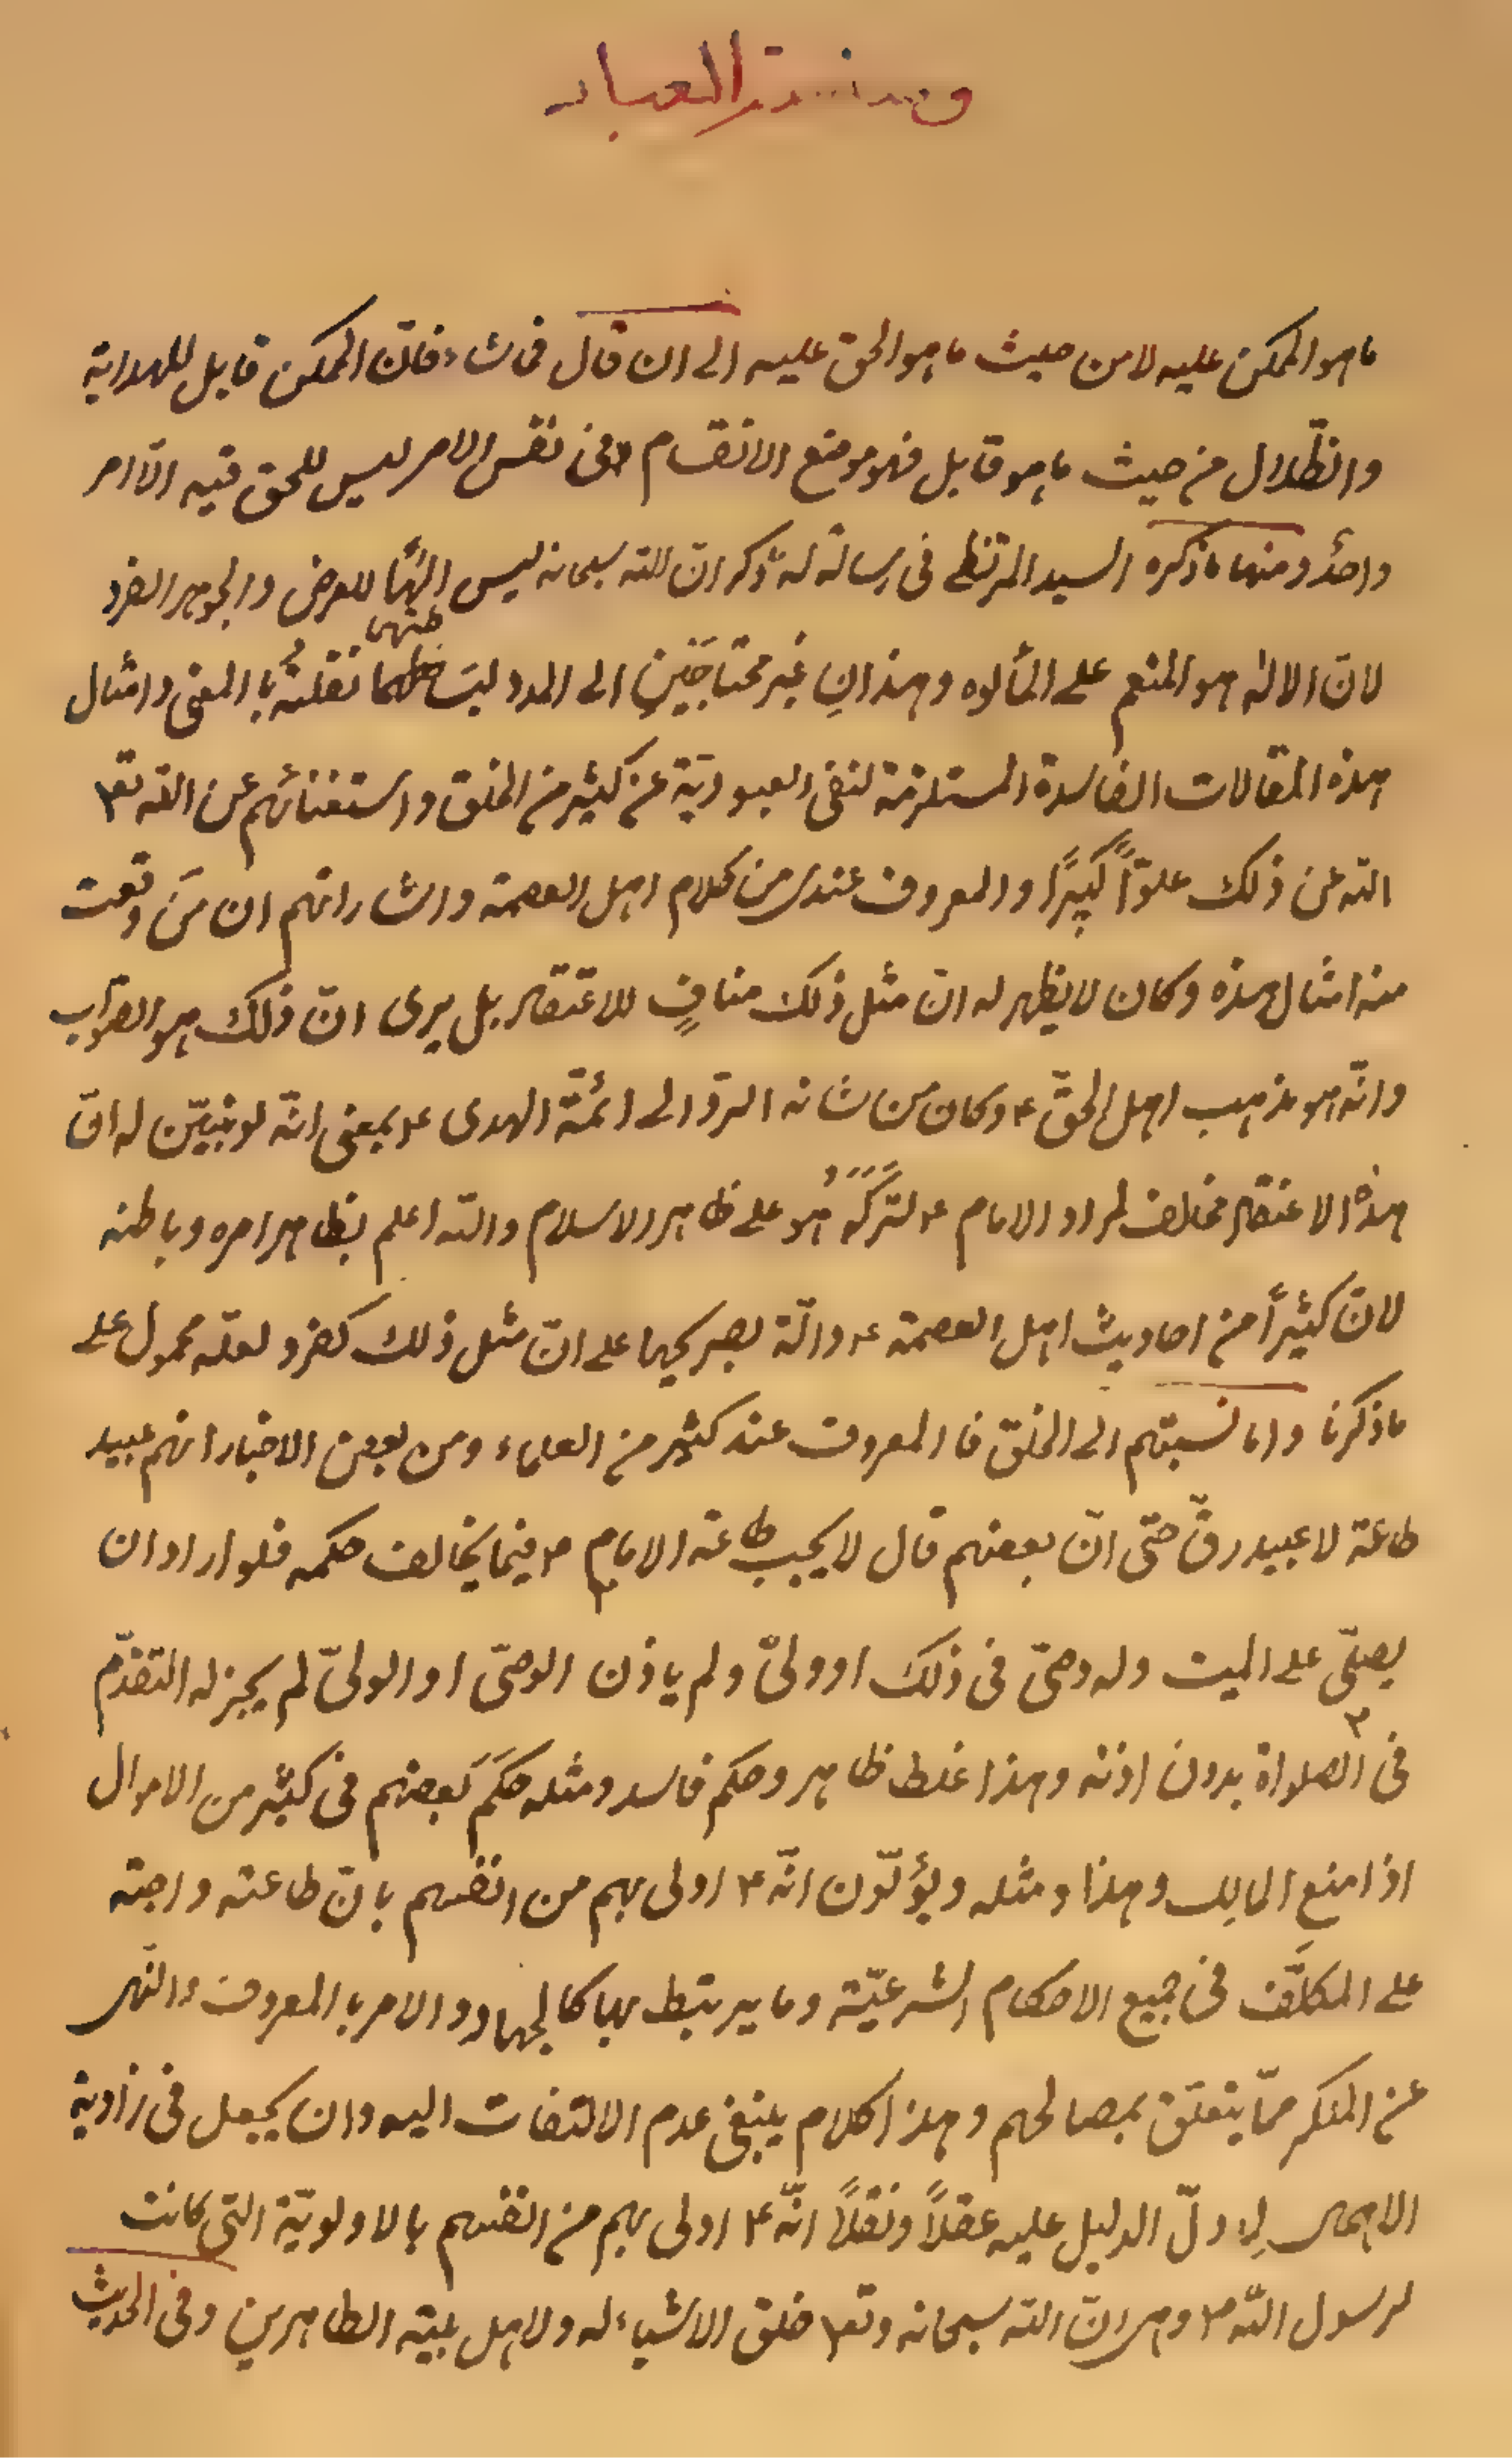 وسنة العباد
ما هو الممكن عليه لا من حيث ما هو الحق عليه الى ان قال فى شاء فانّ الممكن قابل للهداية
والظّلال من حيث ما هو قابل فهو موضع الانقسام وفى نفس الامر ليس للحق فيه الّا امر
واحدٌ ومنها ما ذكره السيد المرتظى فى رسالة له ذكر انّ للّه سبحانه ليس الهًا للعرض والجوهر الفرد
لانّ الاله هو المنعم على المألوه وهذانِ غير محتاجَيْنِ الى المدد ليسَا منهى نقلتُه باالمعنى وامثال
هذه المقالات الفاسدة المستلزمة لنفى العبوديّة عن كثير من الخلق واستغنائهم عن اللّه تعا
اللّه عن ذلك علوّاً كبيرًا والمعروف عندى من كلام اهل العصمة واشاراتهم ان مَن وقعت
منه امثال هذه وكان لا يظهر له انّ مثل ذلك منافٍ للاعتقاد بل يرى انّ ذلك هو الصّواب
وانّه هو مذهب اهل الحقّ ع وكان من شانه الردّ الى ائمّة الهدى ع بمعنى انّه لو تبيّن له انّ
هذه الاعتقاد مخالف لمراد الامام ع لتَرَكَهُ فهو على ظاهر الاسلام واللّه اعلم بظاهر امره وباطنه
لانّ كثيرًا من احاديث اهل العصمة ع دالّة بصريحها على انّ مثل ذلك كفر ولعلّه محمول على
ما ذكرنا واما نسبتهم الى الخلق فاالمعروف عند كثير من العلماء ومن بعض الاخبار انهم عبيد
طاعة لا عبيد رقّ حتّى انّ بعضهم قال لا يجب طاعة الامام ع فيما يخالف حكمه فلو اراد ان
يصلّى على الميت وله وصىّ فى ذلك او ولىّ ولم ياذن الوصىّ او الولىّ لم يجز له التقدّم
فى الصلواة بدون اذنه وهذا غلط ظاهر وحكم فاسد ومثله حكمَ بَعضهم فى كثير من الاموال
اذا منع المالِك وهذا ومثله ويؤلّون انّه ع اولى بهم من انفسهم بانّ طاعته واجبة
على المكلَّف فى جميع الاحكام الشرعيّة وما يرتبط بها كالجهاد والامر باالمعروف والنّهى
عن المنكر ممّا يتعلّق بمصالحهم وهذا كلام ينبغى عدم الالتفات اليه وان يجعل فى زاوية
الاهمال لِما دلّ الدليل عليه عقلاً ونقلاً انّه ع اولى بهم من انفسهم بالاولويّة التى كانت
لرسول اللّه ص وهى انّ اللّه سبحانه وتعا خلق الاشياء له ولاهل بيته الطاهرين وفى الحديث